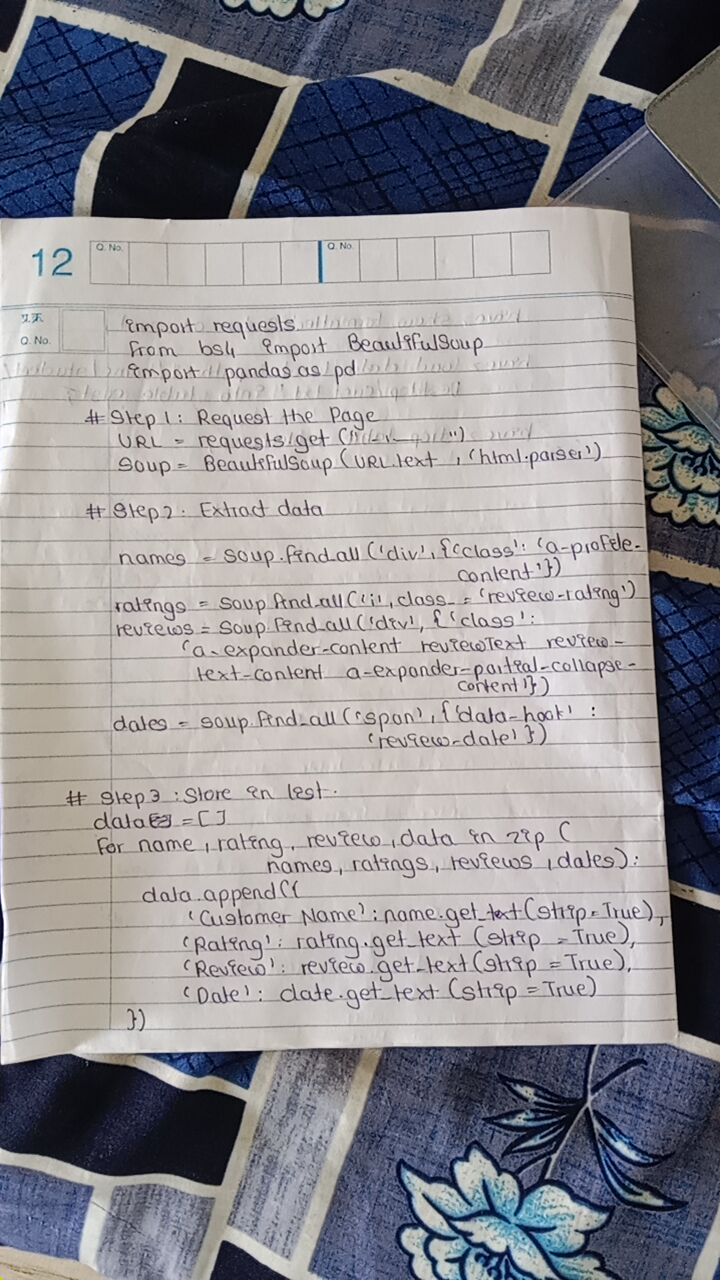 12
Q. No.
Q. No.
Q. No.
import requests
from bs4 import BeautifulSoup
import pandas as pd
# Step 1: Request the Page
URL = requests.get ("")
Soup = BeautifulSoup (URL.text, 'html.parser')
# Step 2: Extract data
names = soup.find_all ('div', {'class': 'a-profile-
content'})
ratings = soup.find_all ('i', class_ = 'review-rating')
reviews = soup.find_all ('div', {'class':
'a-expander-content reviewText review-
text-content a-expander-partial-collapse-
content'})
dates = soup.find_all ('span', {'data-hook' :
'review-date' })
# Step 3 : Store in list.
data = []
For name, rating, review, data in zip (
names, ratings, reviews, dates):
data.append({
'Customer Name': name.get_text (strip=True),
'Rating': rating.get_text (strip = True),
'Review': review.get_text (strip = True),
'Date': date.get_text (strip = True)
})